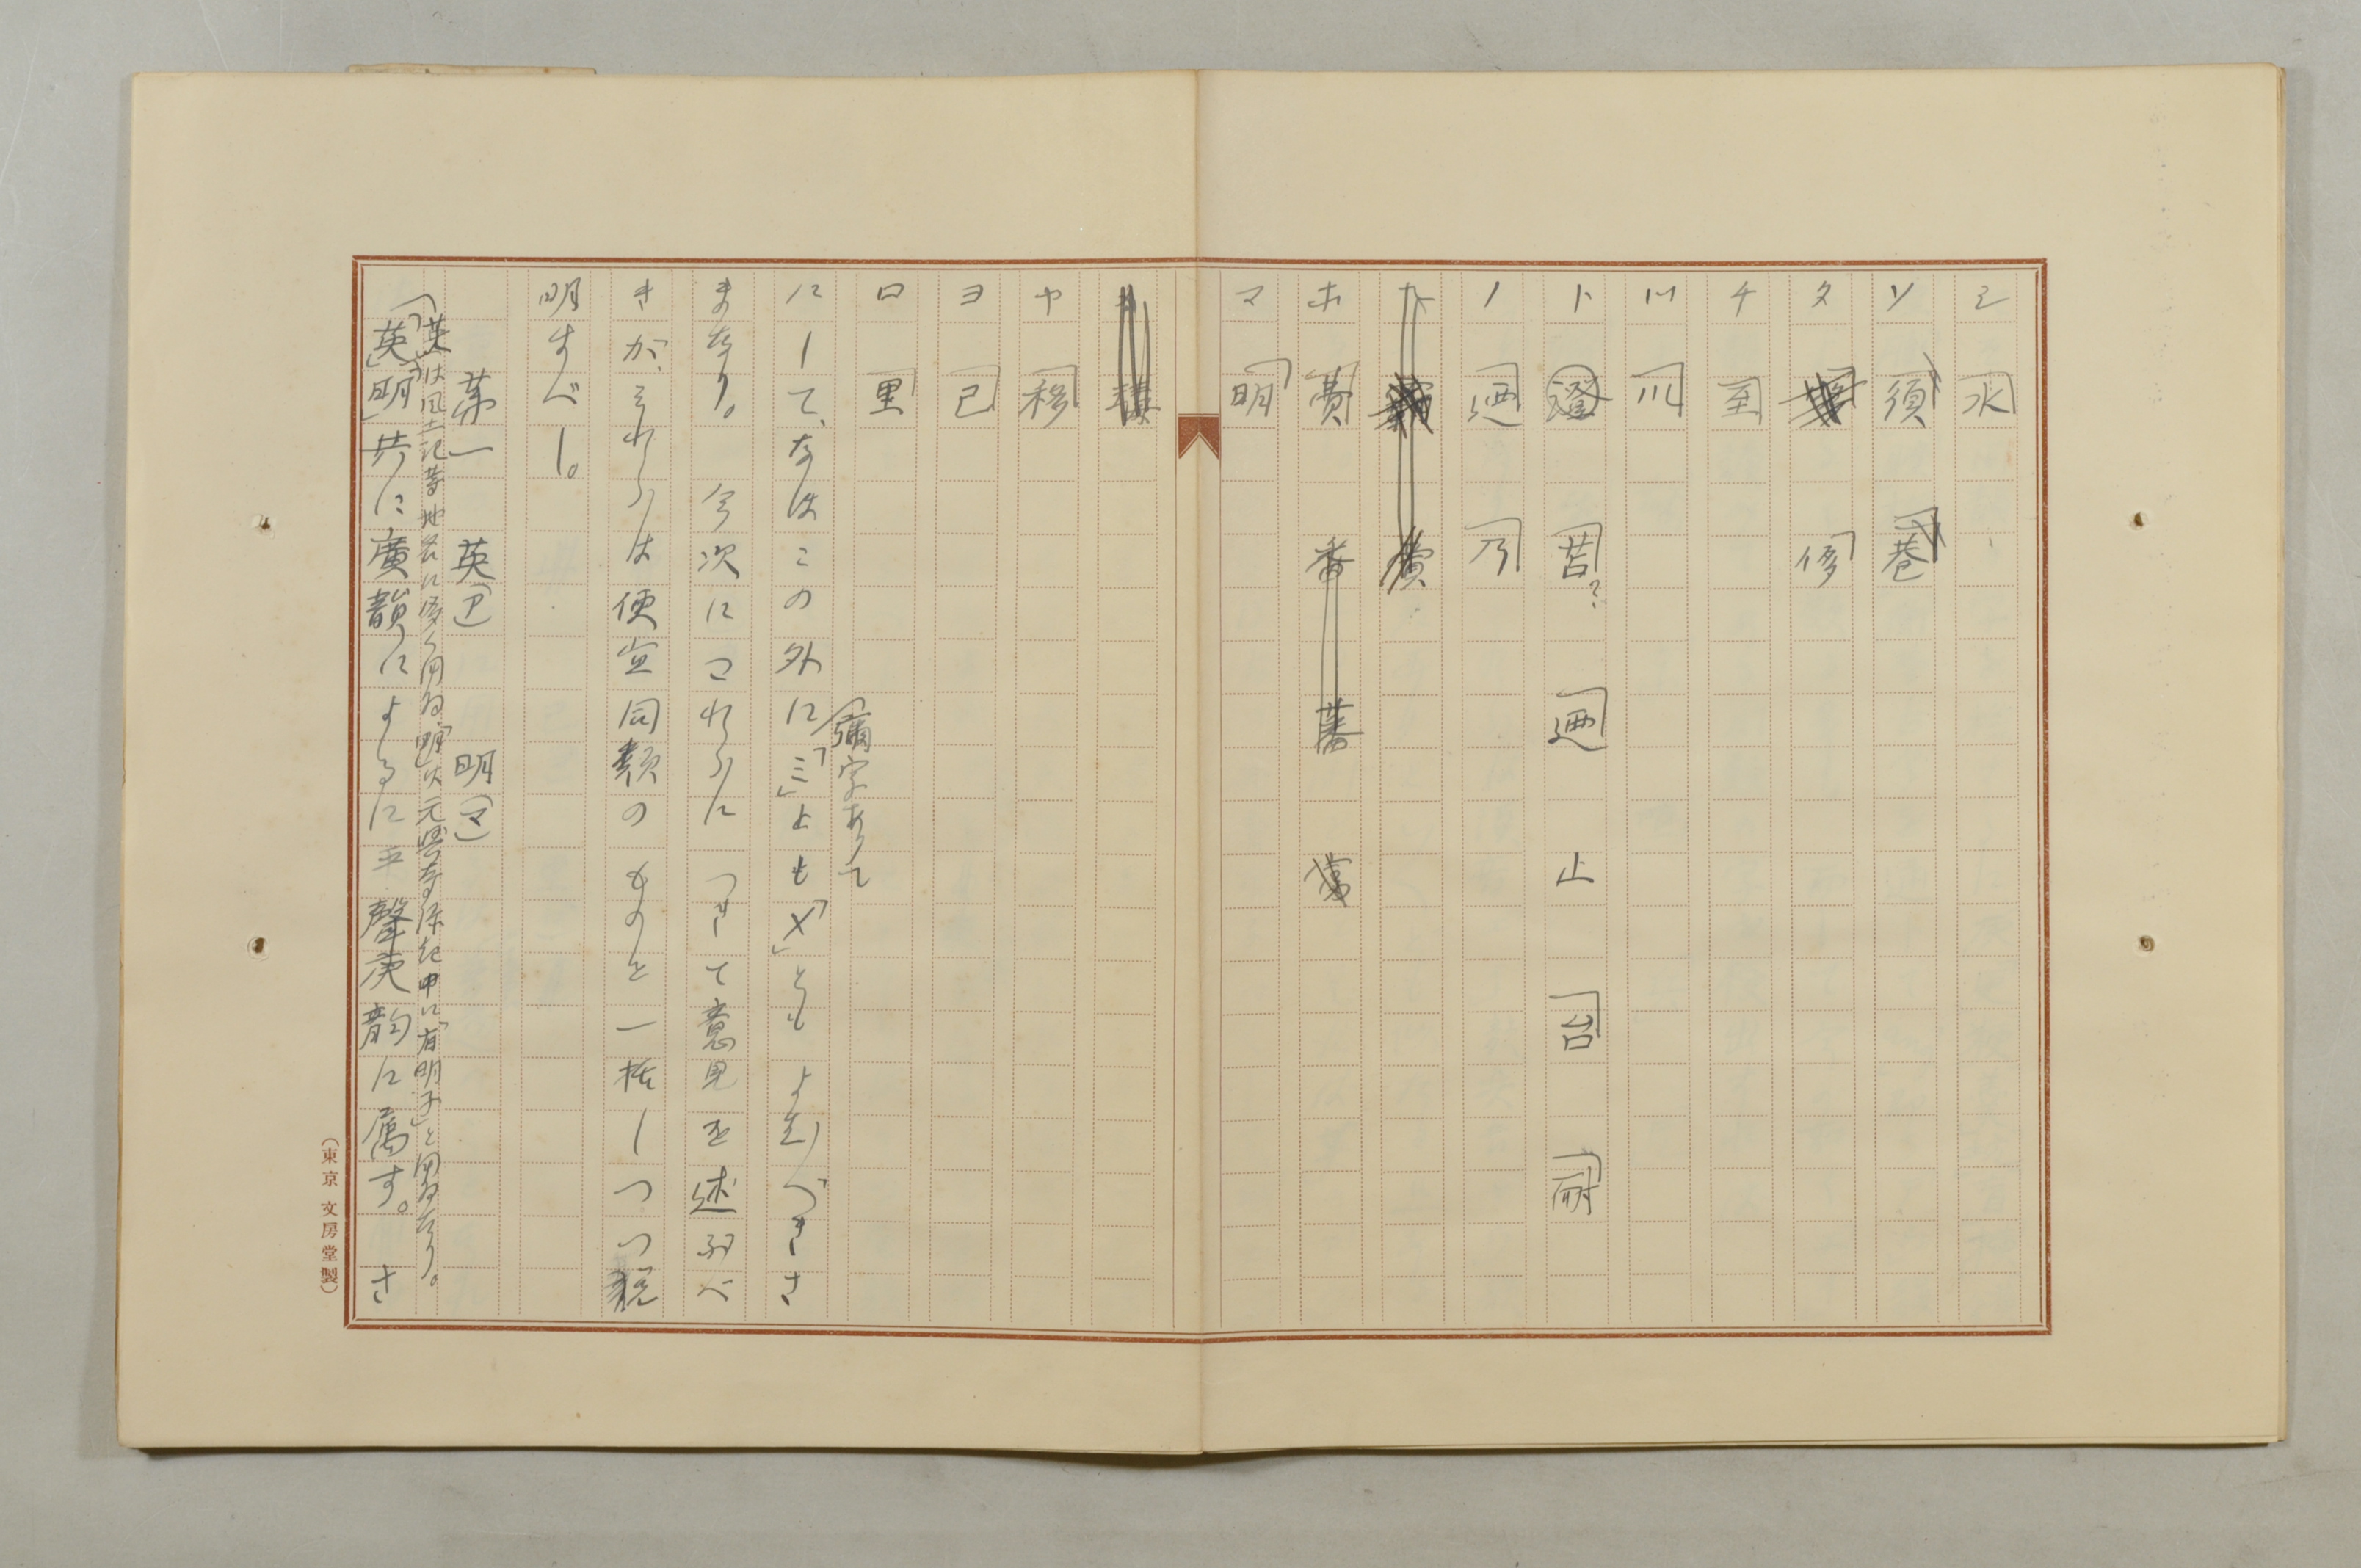 シ 水
ソ 須 巷
タ 侈
チ 至
ツ 川
ト 澄 苔? 廼 止 台 耐
ノ 廼 乃
ホ 費 番 蕃
マ 明
ヤ 移
ヨ 已
ロ 里
彌字ありて
にして、なほこの外に「ミ」とも「メ」ともよむべきさ
まなり。 今次にこれらにつきて意見を述ぶべ
きが、それらは便宜同類のものを一括しつつ説
明すべし。
第一 英(ア) 明(マ)
「英」は風土記等地名に多く用ゐ、「明」は元興寺縁起中に「有明子」と用ゐたり。
「英」「明」共に廣韻によるに平聲庚韵に属す。 さ
(東京 文房堂製)